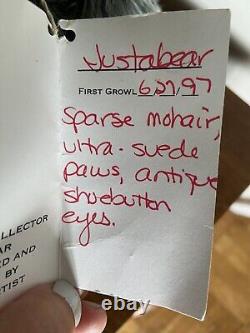 Justabear
FIRST GROWL 6/27/97
sparse mohair,
ultra-suede
paws, antique
shoebutton
eyes.
LLECTOR
AR
ED AND
BY
TIST